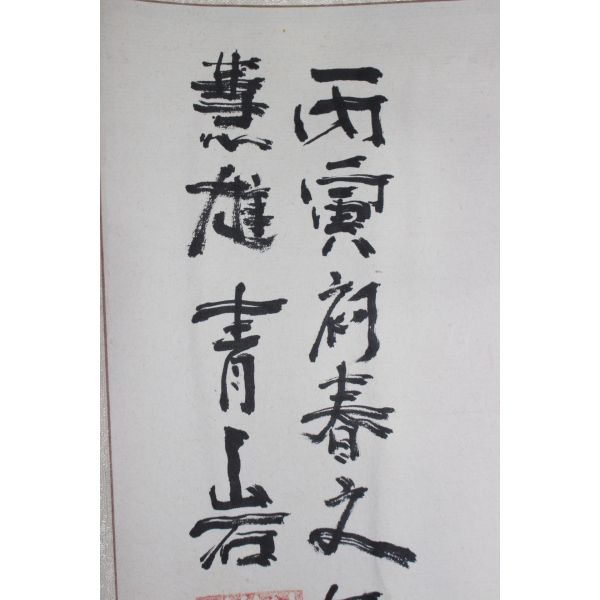 丙寅初春文
慧雄青岩